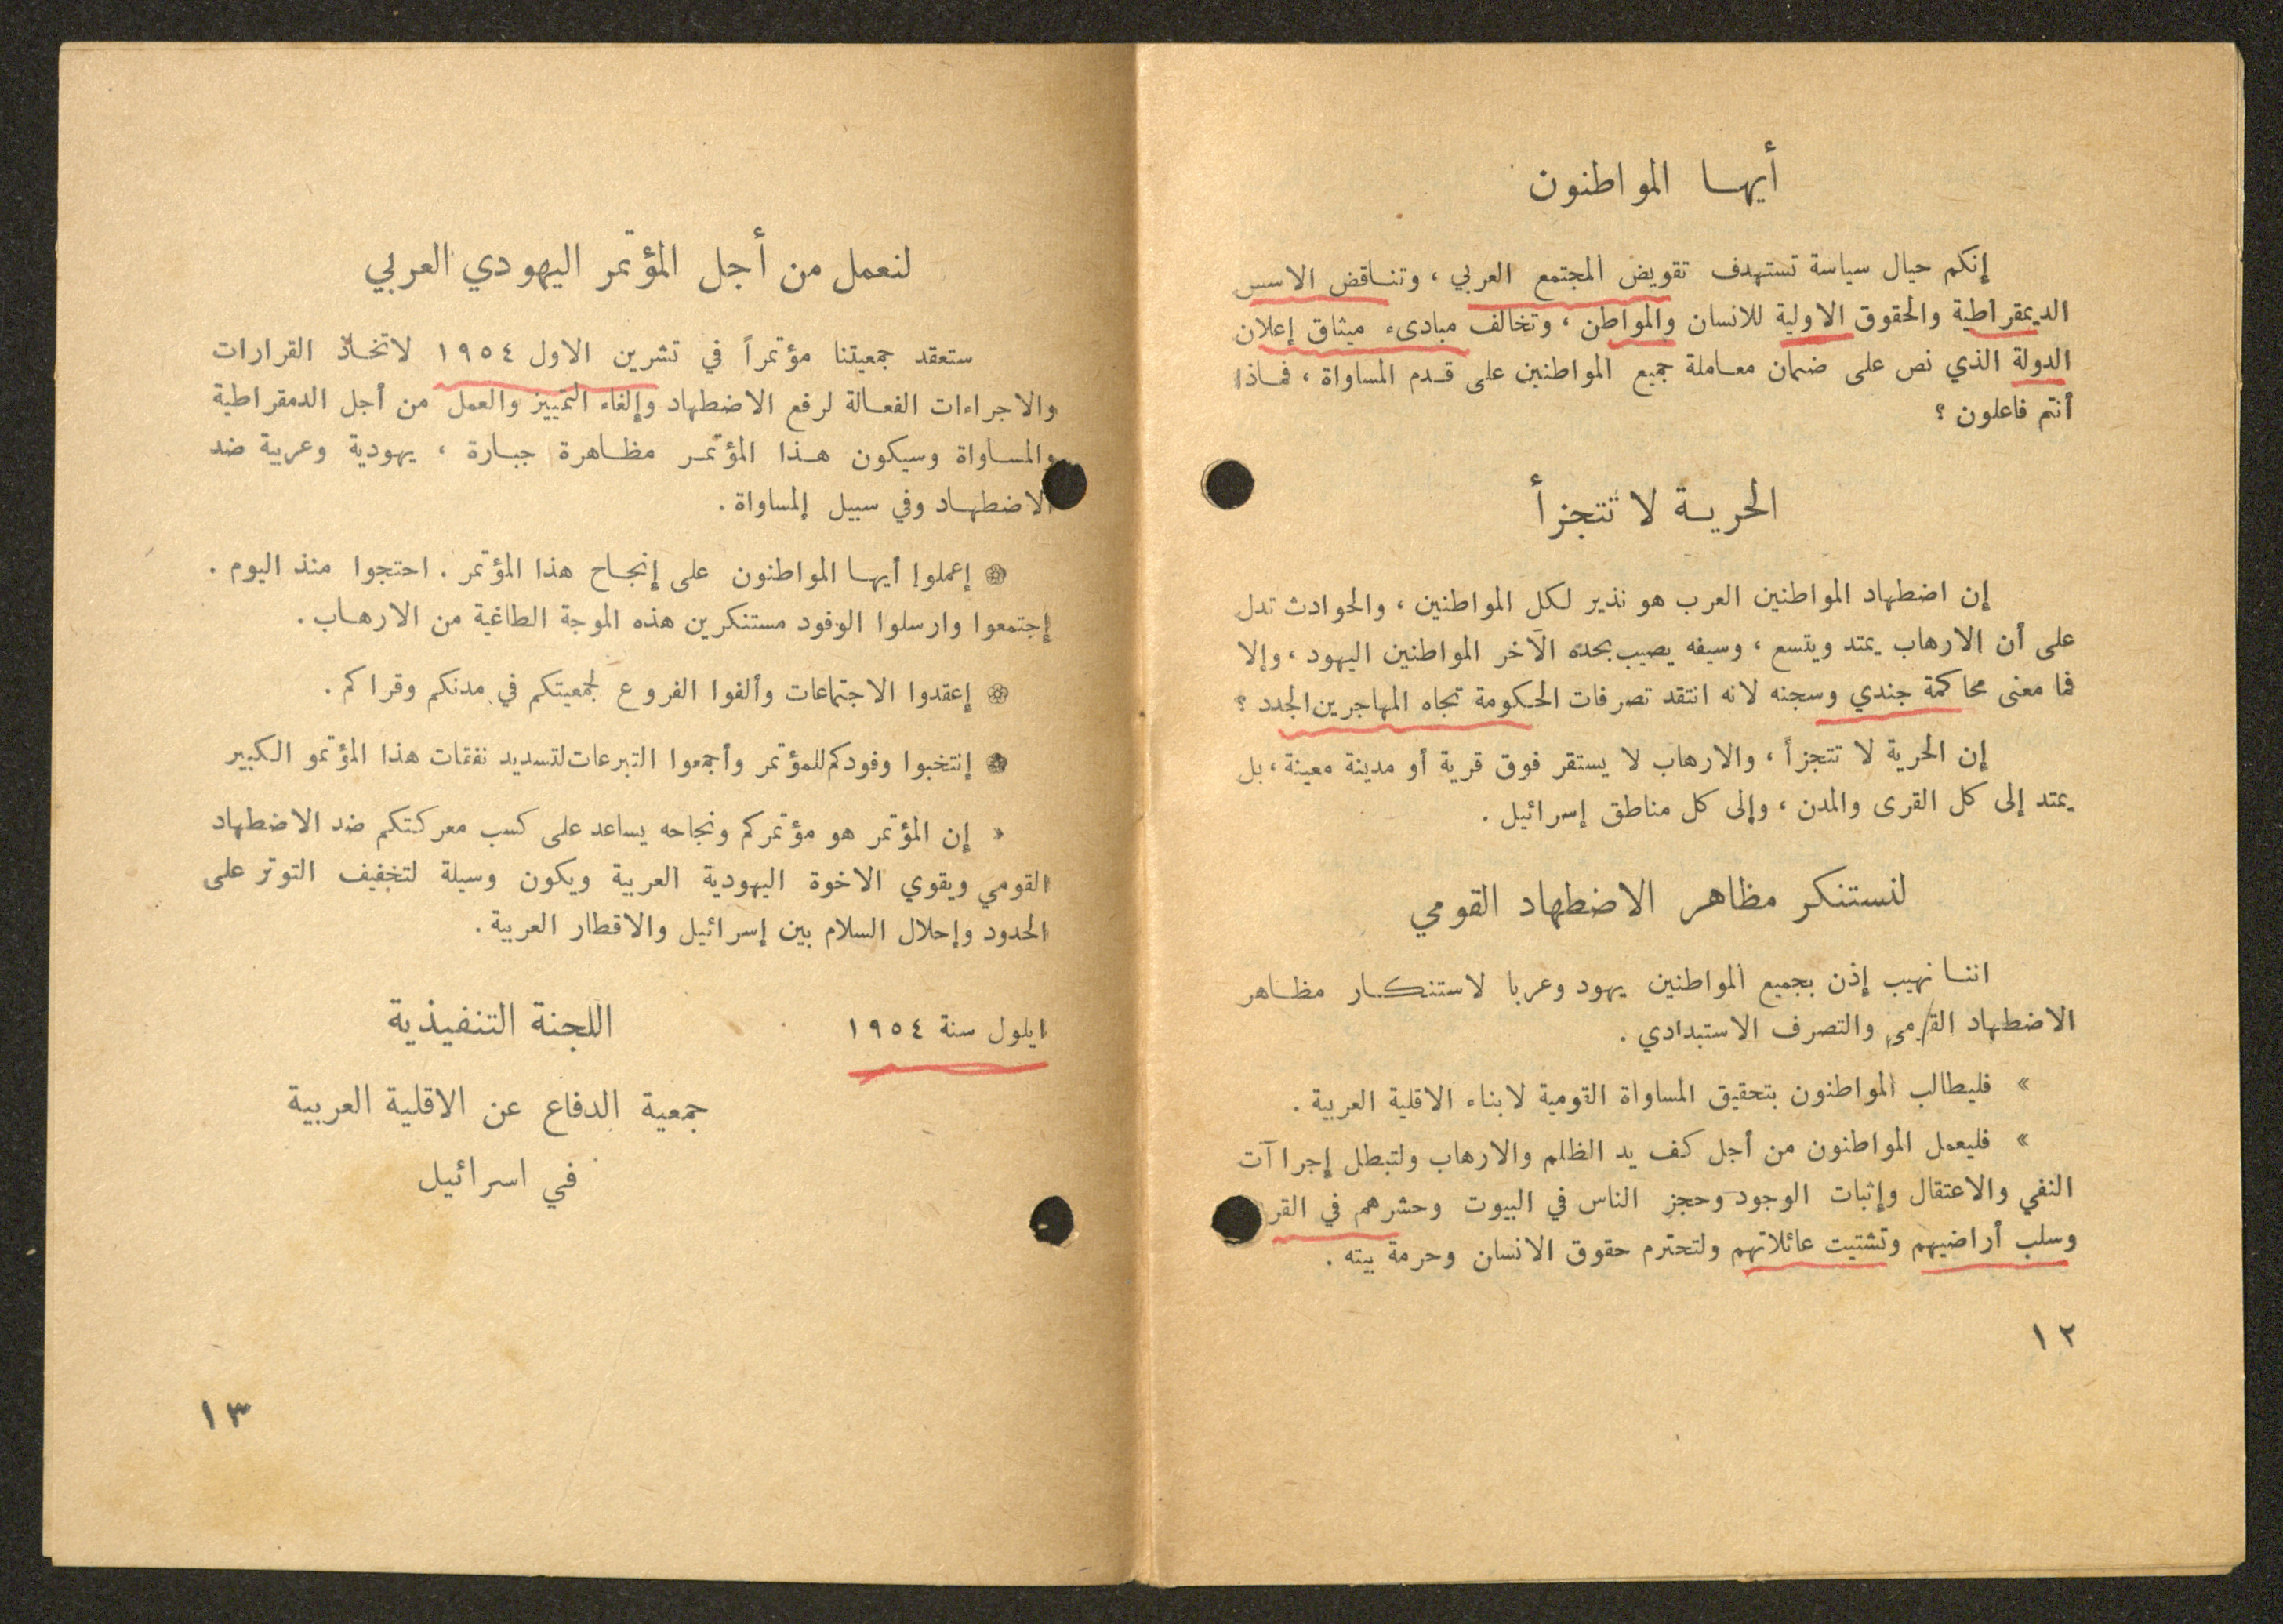 أيها المواطنون
إنكم حيال سياسة تستهدف تقويض المجتمع العربي ، وتناقض الاسس
الديمقراطية والحقوق الاولية للانسان والمواطن ، وتخالف مبادىء ميثاق إعلان
الدولة الذي نص على ضمان معاملة جميع المواطنين على قدم المساواة ، فماذا
أنتم فاعلون ؟
الحرية لا تتجزأ
إن اضطهاد المواطنين العرب هو نذير لكل المواطنين ، والحوادث تدل
على أن الارهاب يمتد ويتسع ، وسيفه يصيب بحده الآخر المواطنين اليهود ، وإلا
فما معنى محاكمة جندي وسجنه لانه انتقد تصرفات الحكومة تجاه المهاجرين الجدد ؟
إن الحرية لا تتجزأ ، والارهاب لا يستقر فوق قرية أو مدينة معينة ، بل
يمتد إلى كل القرى والمدن ، وإلى كل مناطق إسرائيل .
لنستنكر مظاهر الاضطهاد القومي
اننا نهيب إذن بجميع المواطنين يهود وعربا لاستنكار مظاهر
الاضطهاد القومي والتصرف الاستبدادي .
» فليطالب المواطنون بتحقيق المساواة القومية لابناء الاقلية العربية .
» فليعمل المواطنون من أجل كف يد الظلم والارهاب ولتبطل إجراآت
النفي والاعتقال وإثبات الوجود وحجز الناس في البيوت وحشرهم في القر
وسلب أراضيهم وتشتيت عائلاتهم ولتحترم حقوق الانسان وحرمة بيته .
١٢
لنعمل من أجل المؤتمر اليهودي العربي
ستعقد جمعيتنا مؤتمراً في تشرين الاول ١٩٥٤ لاتخاذ القرارات
والاجراءات الفعالة لرفع الاضطهاد وإلغاء التمييز والعمل من أجل الدمقراطية
والمساواة وسيكون هذا المؤتمر مظاهرة جبارة ، يهودية وعربية ضد
الاضطهاد وفي سبيل المساواة .
إعملوا أيها المواطنون على إنجاح هذا المؤتمر . احتجوا منذ اليوم .
إجتمعوا وارسلوا الوفود مستنكرين هذه الموجة الطاغية من الارهاب .
إعقدوا الاجتماعات وألفوا الفروع لجمعيتكم في مدنكم وقراكم .
إنتخبوا وفودكم للمؤتمر وأجمعوا التبرعات لتسديد نفقات هذا المؤتمو الكبير
« إن المؤتمر هو مؤتمركم ونجاحه يساعد على كسب معركتكم ضد الاضطهاد
القومي ويقوي الاخوة اليهودية العربية ويكون وسيلة لتخفيف التوتر على
الحدود وإحلال السلام بين إسرائيل والاقطار العربية .
ايلول سنة ١٩٥٤
اللجنة التنفيذية
جمعية الدفاع عن الاقلية العربية
في اسرائيل
١٣